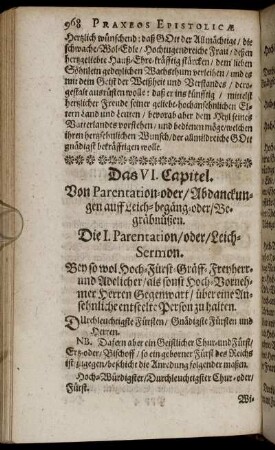 968 PRAXEOS EPISTOLICÆ
Hertzlich wünschend: daß GOtt der Allmächtige / die
schwache / Wol-Edle / Hochtugendreiche Frau / deßen
hertzgeliebte Hauß-Ehre / kräfftig stärcken / dem lieben
Söhnlein gedeylichen Wachsthum verleihen / und es
mit dem Geist der Weißheit und Verstandes / derge-
gestalt ausrüsten wolle: daß er ins künfftig / mittelst
hertzlicher Freude seiner geliebt-hochansehnlichen El-
tern Land und Leuten / bevorab aber dem Heyl seines
Vaterlandes vorstehen / und bedienen möge / welchen
ihren hertzsehnlichen Wunsch / der allmildreiche GOtt
gnädigst bekräfftigen wolle.
Das VI. Capitel.
Von Parentation-oder / Abdanckun-
gen auff Leich-begäng-oder / Be-
gräbnüßen.
Die I. Parentation / oder / Leich-
Sermon.
Bey so wol Hoch-Fürst-Gräff-Freyherr-
und Adelicher / als sonst Hoch-Vorneh-
mer Herren Gegenwart / über eine An-
sehnliche entseelte Person zu halten.
DUrchleuchtigste Fürsten / Gnädigste Fürsten und
Herren.
NB. Dafern aber ein Geistlicher Chur-und Fürst /
Ertz-oder / Bischoff / so ein geborner Fürst des Reichs
ist zugegen / beschicht die Anredung folgender masen.
Hoch-Würdigster / Durchleuchtigster Chur- oder /
Fürst.
Wi-